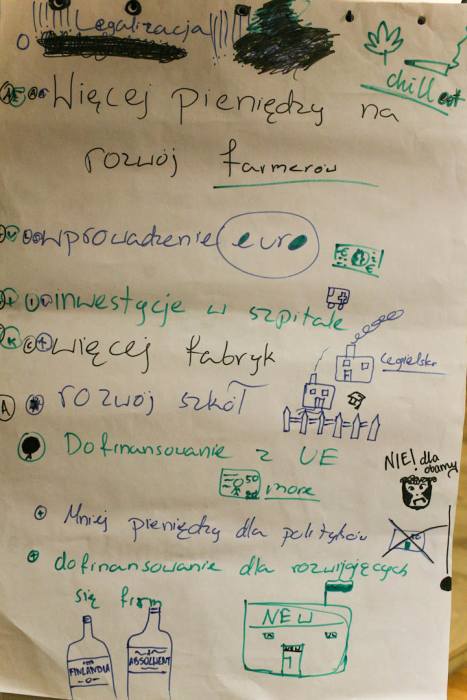 Legalizacja
chillout
Więcej pieniędzy na
rozwój farmerów
wprowadzenie euro
inwestycje w szpitale
więcej fabryk
Cegielski
rozwój szkół
Dofinansowanie z UE
50
more
NIE! dla
obamy
Mniej pieniędzy dla polityków
dofinansowanie dla rozwijających
się firm
NEW
FINLANDIA
ABSOLWENT